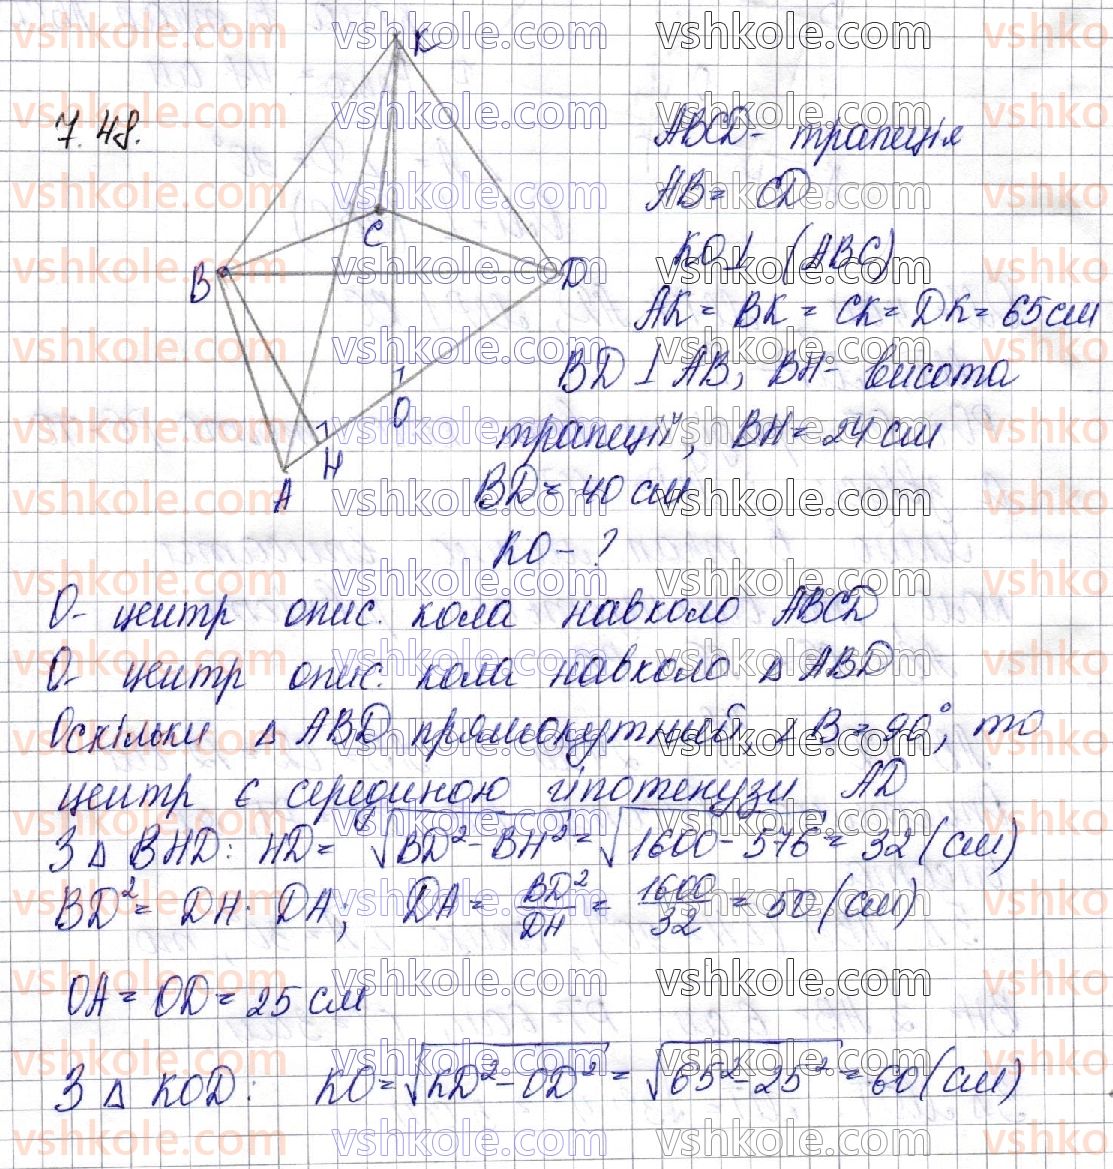 7.48.
K
C
B
D
O
H
A
ABCD - трапеція
AB = CD
KO ⊥ (ABC)
AK = BK = CK = DK = 65 см
BD ⊥ AB, BH - висота
трапеції, BH = 24 см
BD = 40 см
KO - ?
O - центр опис. кола навколо ABCD
O - центр опис. кола навколо △ ABD
Оскільки △ ABD прямокутний, ∠B = 90°, то
центр є серединою гіпотенузи AD
З △ BHD: HD = √(BD² - BH²) = √(1600 - 576) = 32 (см)
BD² = DH · DA; DA = BD²/DH = 1600/32 = 50 (см)
OA = OD = 25 см
З △ KOD: KO = √(KD² - OD²) = √(65² - 25²) = 60 (см)
vshkole.com